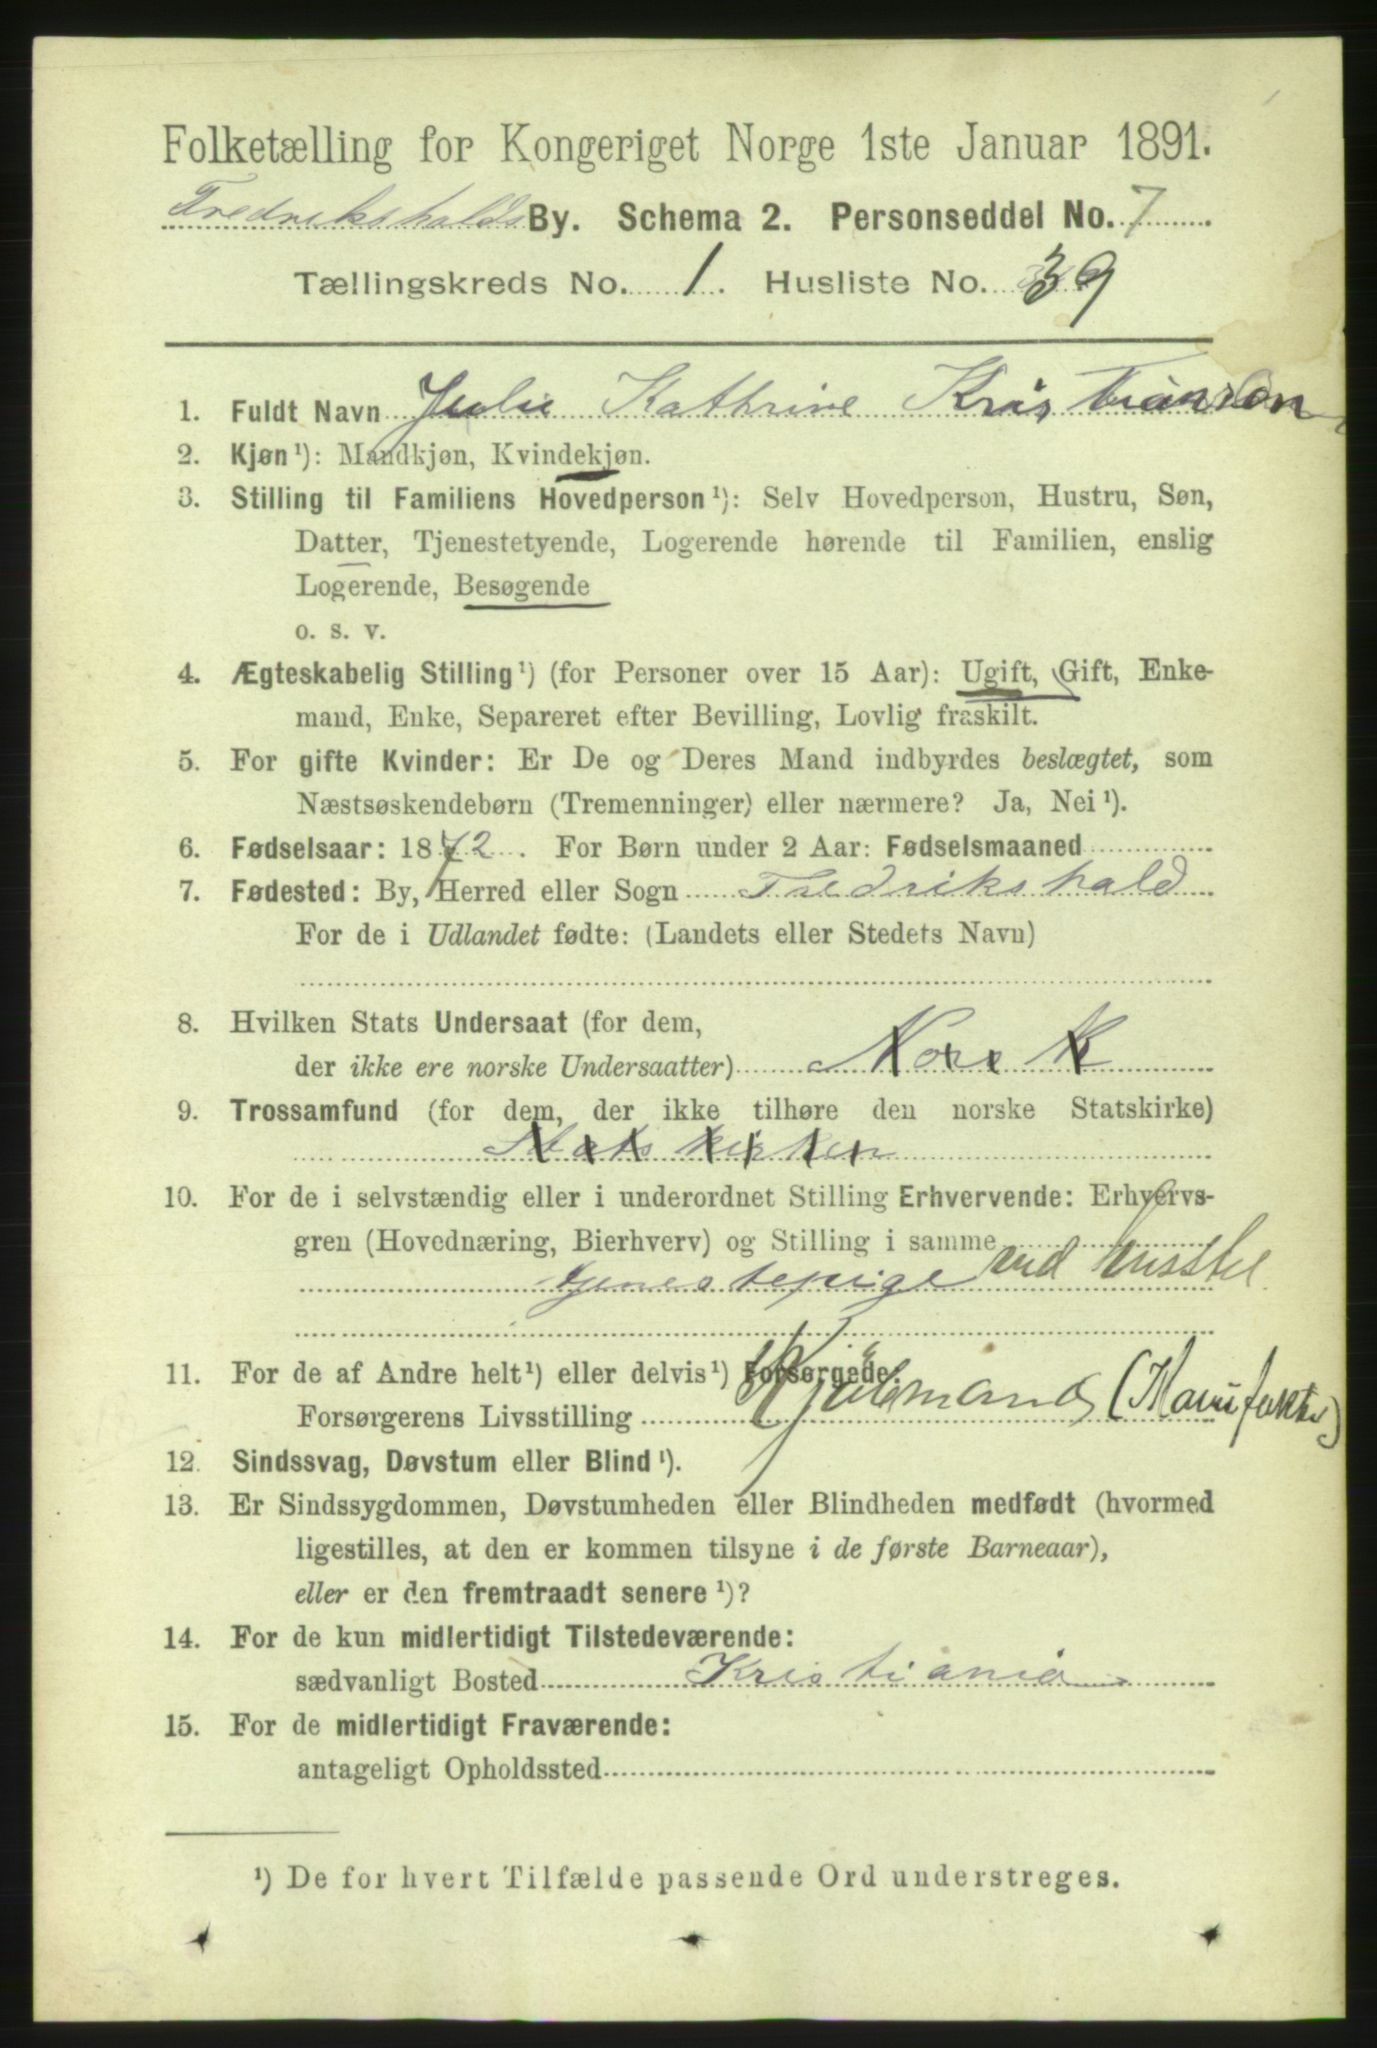 Folketælling for Kongeriget Norge 1ste Januar 1891.
Fredrikshalds By. Schema 2. Personseddel No. 7
Tællingskreds No. 1. Husliste No. 39
1. Fuldt Navn Julie Kathrine Kristiansen
2. Kjøn ¹): Mandkjøn, Kvindekjøn.
3. Stilling til Familiens Hovedperson ¹): Selv Hovedperson, Hustru, Søn,
Datter, Tjenestetyende, Logerende hørende til Familien, enslig
Logerende, Besøgende
o. s. v.
4. Ægteskabelig Stilling ¹) (for Personer over 15 Aar): Ugift, Gift, Enke-
mand, Enke, Separeret efter Bevilling, Lovlig fraskilt.
5. For gifte Kvinder: Er De og Deres Mand indbyrdes beslægtet, som
Næstsøskendebørn (Tremenninger) eller nærmere? Ja, Nei ¹).
6. Fødselsaar: 1872. For Børn under 2 Aar: Fødselsmaaned
7. Fødested: By, Herred eller Sogn Fredrikshald
For de i Udlandet fødte: (Landets eller Stedets Navn)
8. Hvilken Stats Undersaat (for dem,
der ikke ere norske Undersaatter) Norsk
9. Trossamfund (for dem, der ikke tilhøre den norske Statskirke)
Statskirken
10. For de i selvstændig eller i underordnet Stilling Erhvervende: Erhvervs-
gren (Hovednæring, Bierhverv) og Stilling i samme
tjenestepige ved husstel
11. For de af Andre helt ¹) eller delvis ¹) Forsørgede:
Forsørgerens Livsstilling Kjøbmand (Manufaktur)
12. Sindssvag, Døvstum eller Blind ¹).
13. Er Sindssygdommen, Døvstumheden eller Blindheden medfødt (hvormed
ligestilles, at den er kommen tilsyne i de første Barneaar),
eller er den fremtraadt senere ¹)?
14. For de kun midlertidigt Tilstedeværende:
sædvanligt Bosted Kristiania
15. For de midlertidigt Fraværende:
antageligt Opholdssted
¹) De for hvert Tilfælde passende Ord understreges.